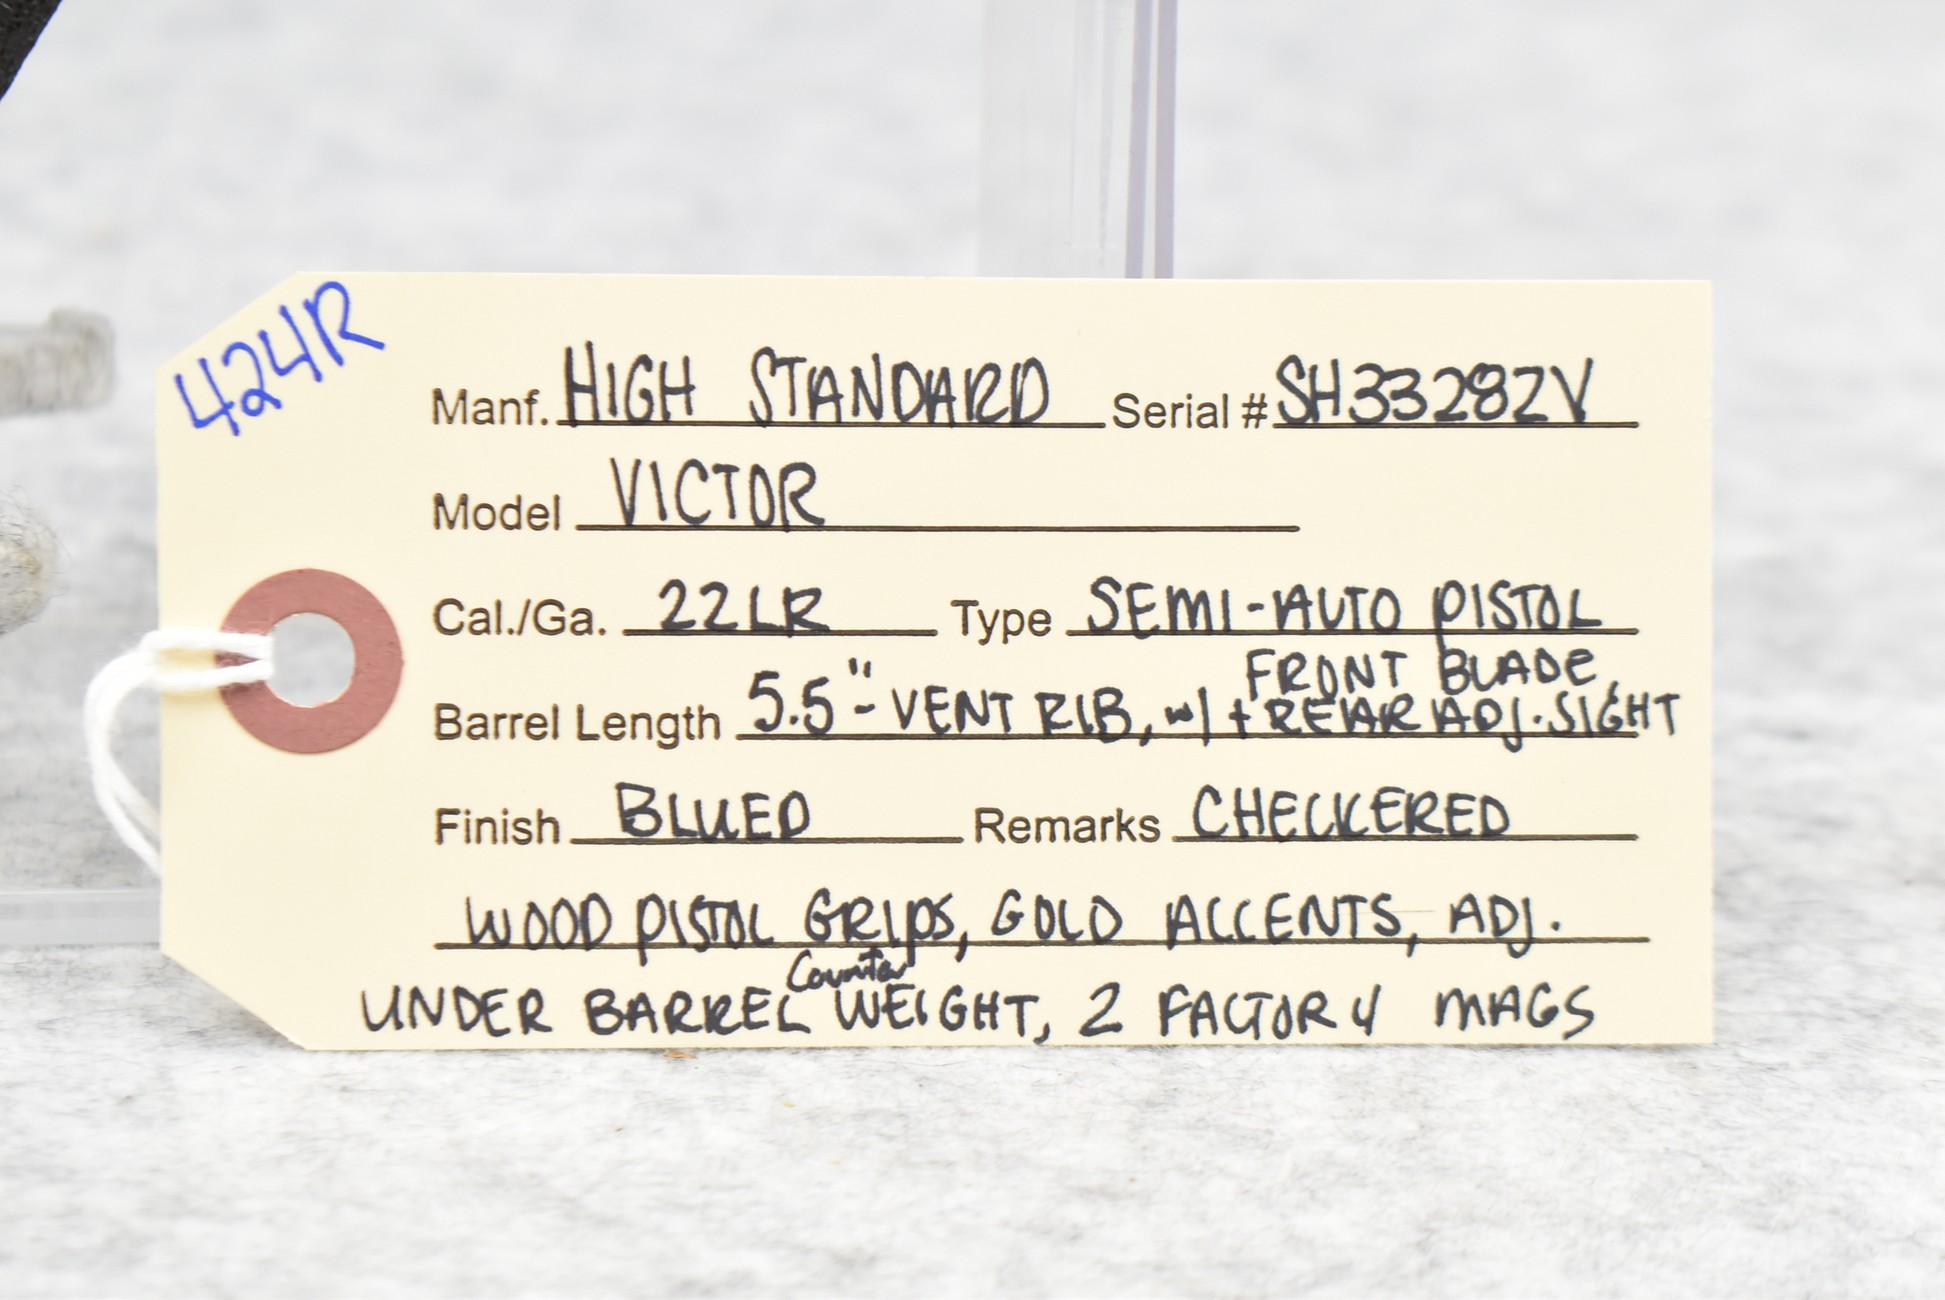 424R
Manf. HIGH STANDARD Serial # SH33282V
Model VICTOR
Cal./Ga. 22LR Type SEMI-AUTO PISTOL
FRONT BLADE
Barrel Length 5.5"- VENT RIB, w/ + REAR ADJ. SIGHT
Finish BLUED Remarks CHECKERED
WOOD PISTOL GRIPS, GOLD ACCENTS, ADJ.
Counter
UNDER BARREL WEIGHT, 2 FACTORY MAGS